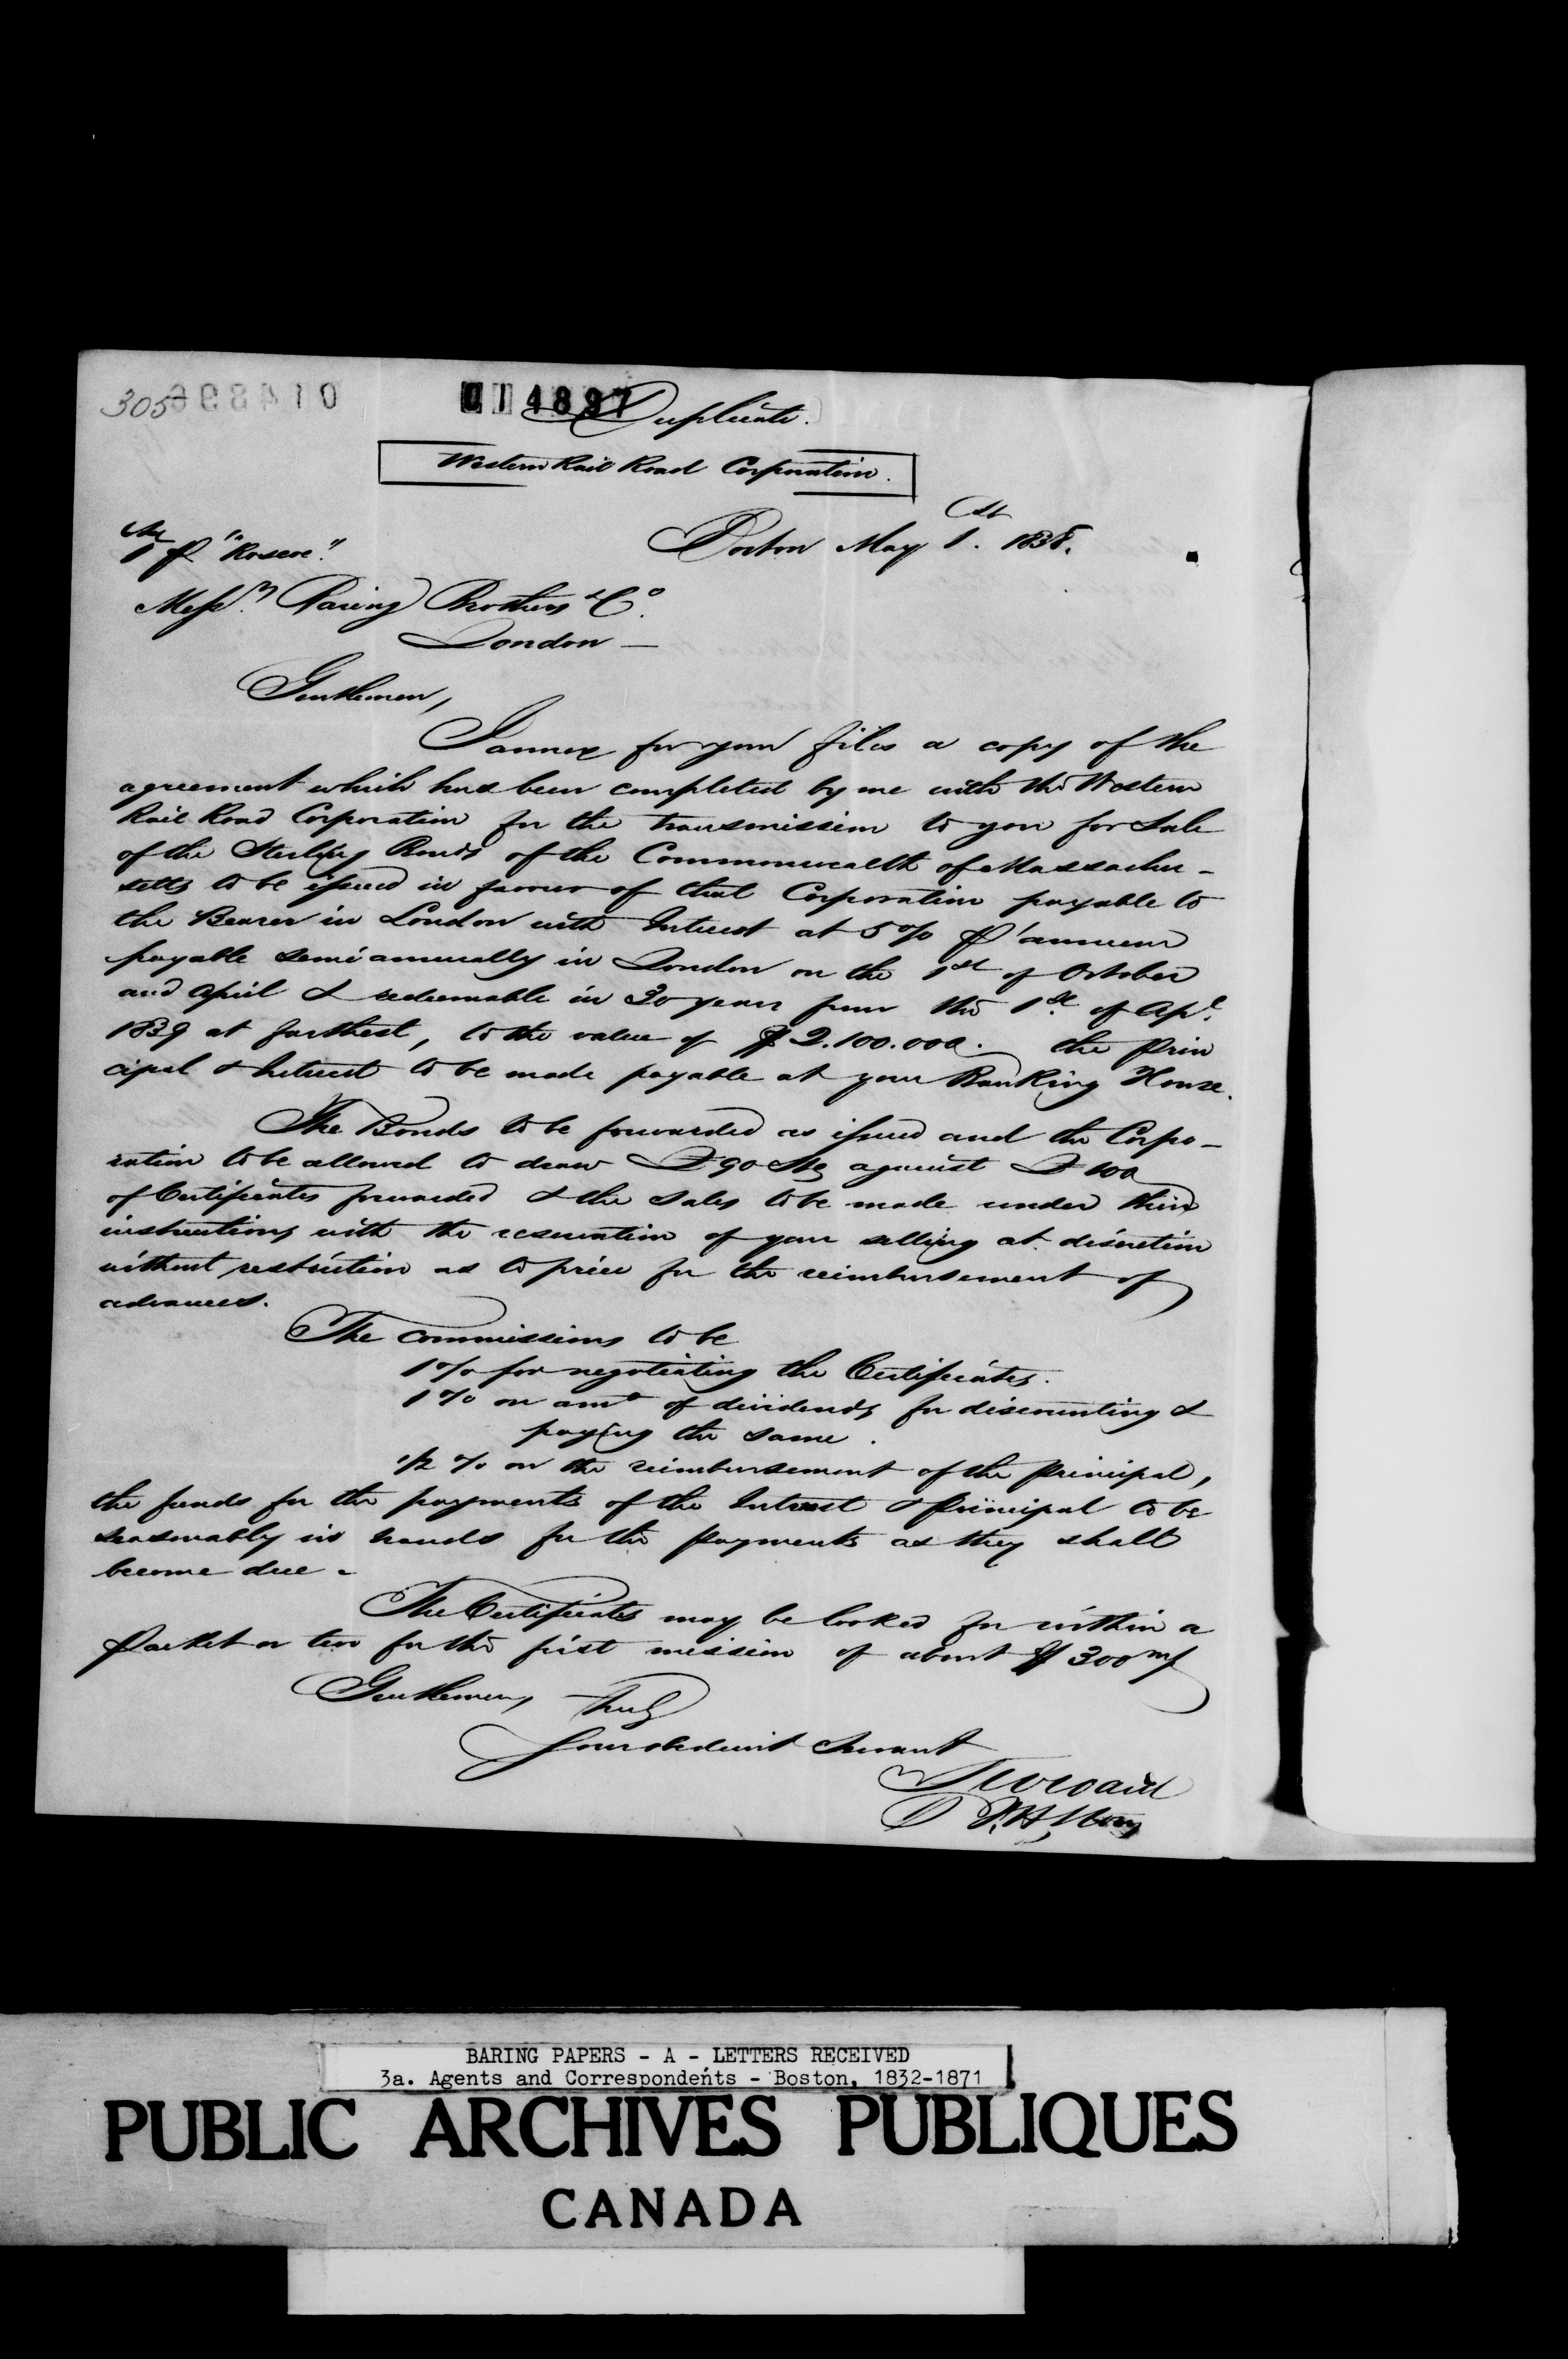 305
014897
Duplicate.
Western Rail Road Corporation.
Boston May 1st. 1838.
"Roscoe."
Messrs Baring Brothers & Co.
London —
Gentlemen,
I annex for your files a copy of the
agreement which has been completed by me with the Western
Rail Road Corporation for the transmission to you for sale
of the Sterling Bonds of the Commonwealth of Massachu-
setts to be issued in favour of that Corporation payable to
the Bearer in London with Interest at 5% P annum
payable semi annually in London on the 1st of October
and April & redeemable in 30 years from the 1st. of Apl.
1839 at furthest, to the value of $2.100.000. the Prin
cipal & Interest to be made payable at your Banking House.
The Bonds to be forwarded as issued and the Corpo-
ration to be allowed to draw £90 Stg against £100
of Certificates forwarded & the sales to be made under their
instructions with the reservation of your selling at discretion
without restriction as to price for the reimbursement of
advances.
The commissions to be
1% for negotiating the Certificates.
1% on amt of dividends for discounting &
paying the same.
1/2 % on the reimbursement of the Principal,
the funds for the payments of the Interest & Principal to be
seasonably in hands for the payments as they shall
become due -
The Certificates may be looked for within a
Packet or two for the first mission of about $300 m/
Gentlemen, Truly
Your obedient Servant
T W Ward
BARING PAPERS - A - LETTERS RECEIVED
3a. Agents and Correspondents - Boston, 1832-1871
PUBLIC ARCHIVES PUBLIQUES
CANADA